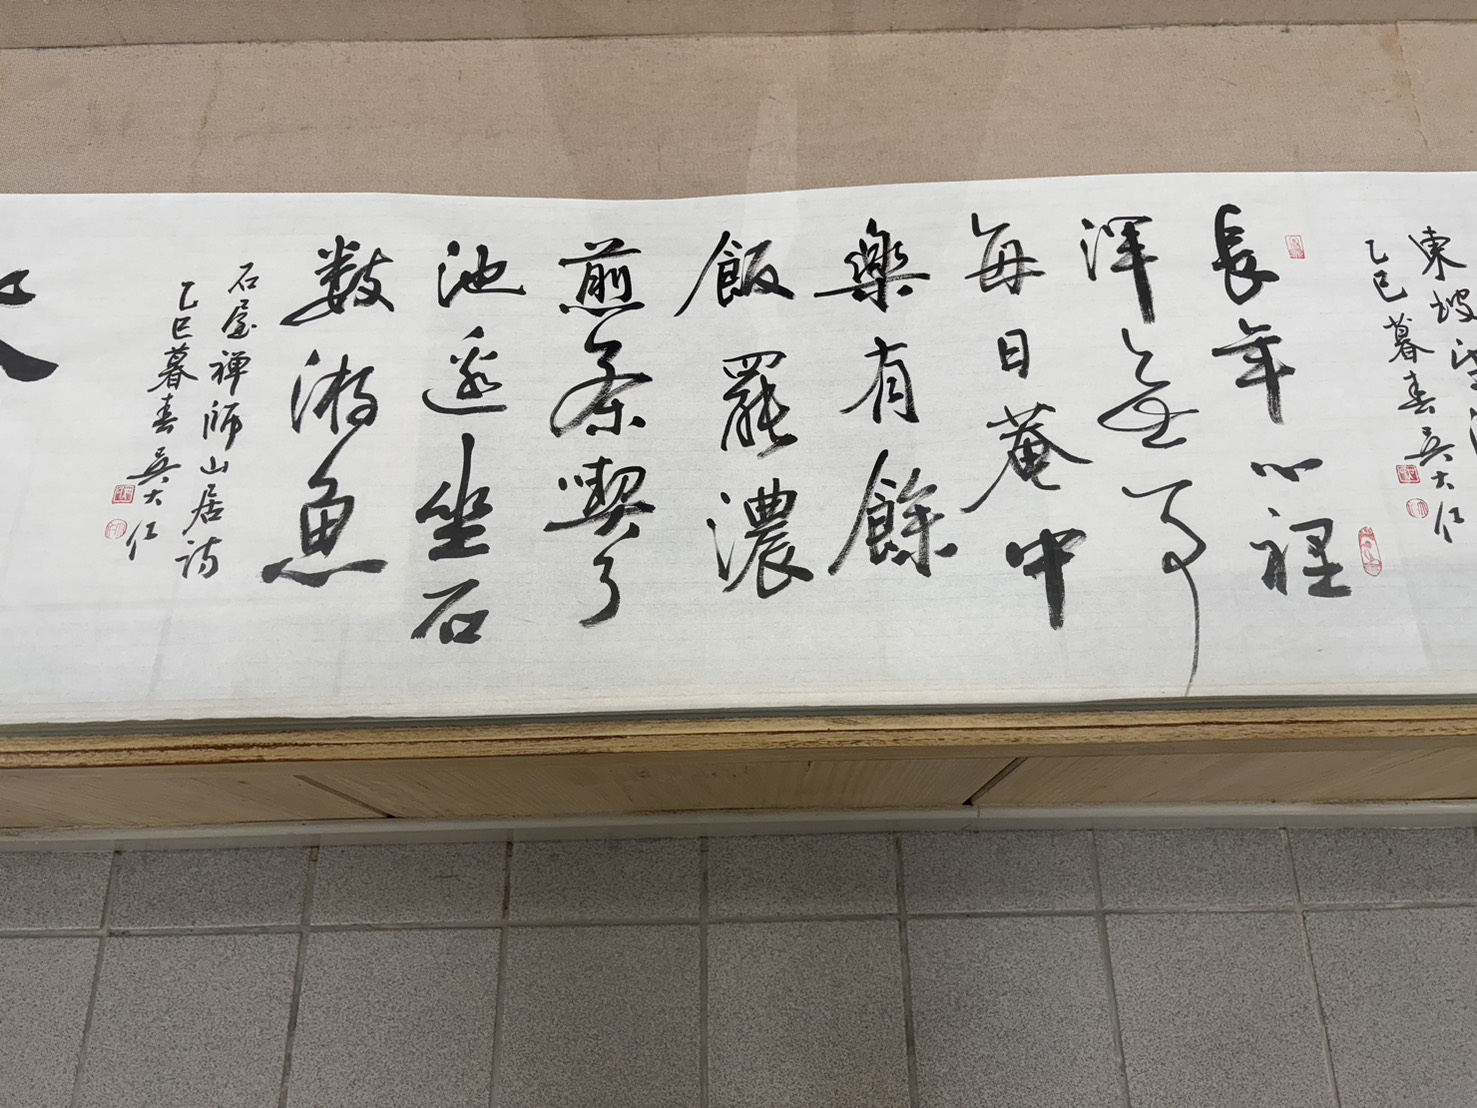 東坡
乙巳暮春吳大仁
長年心裡
渾無事
每日菴中
樂有餘
飯罷濃
煎茶喫了
池邊坐石
數游魚
石屋禪師山居詩
乙巳暮春吳大仁